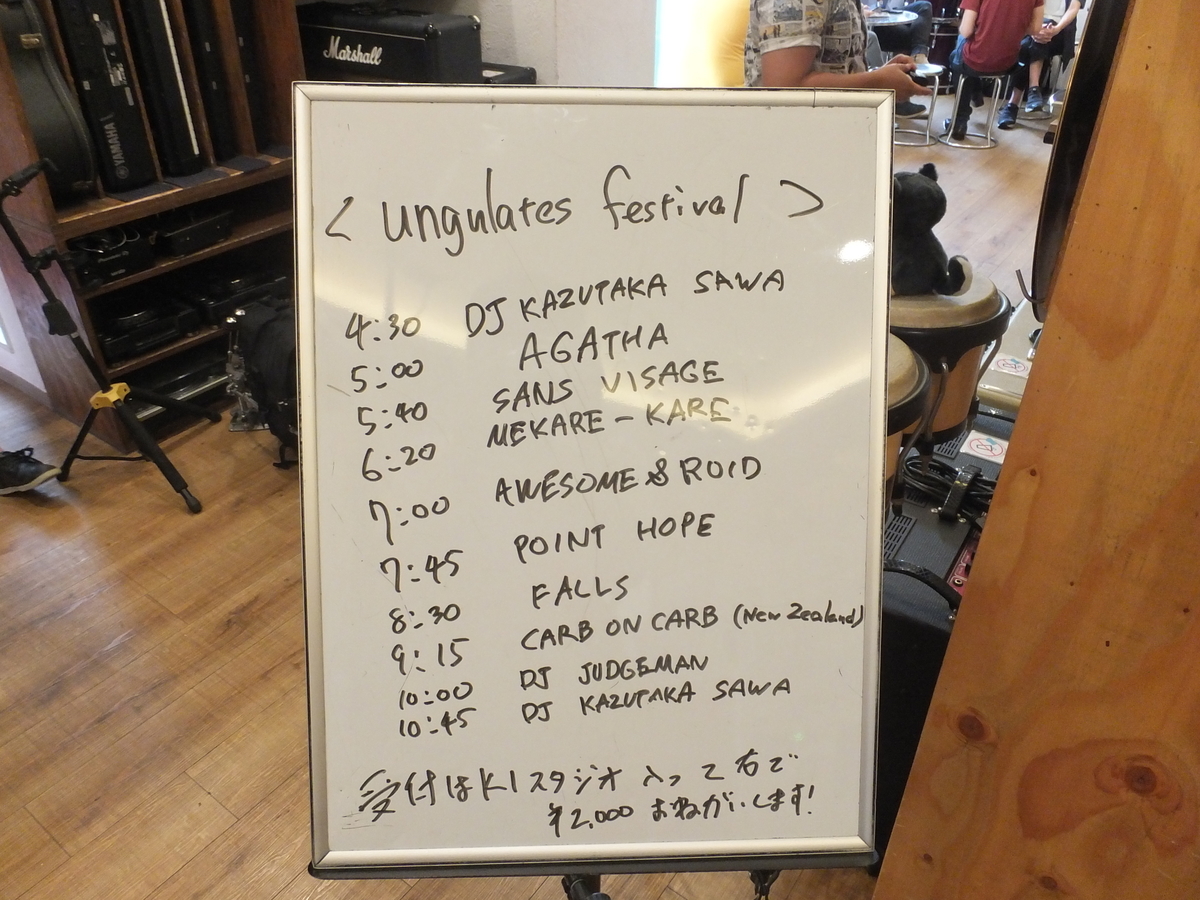 Marshall
YAMAHA
< ungulates festival >
4:30 DJ KAZUTAKA SAWA
5:00 AGATHA
5:40 SANS VISAGE
6:20 MEKARE-KARE
7:00 AWESOME & ROID
7:45 POINT HOPE
8:30 FALLS
9:15 CARB ON CARB (New Zealand)
10:00 DJ JUDGEMAN
10:45 DJ KAZUTAKA SAWA
受付はK1スタジオ入って右で
¥2,000 おねがいします!